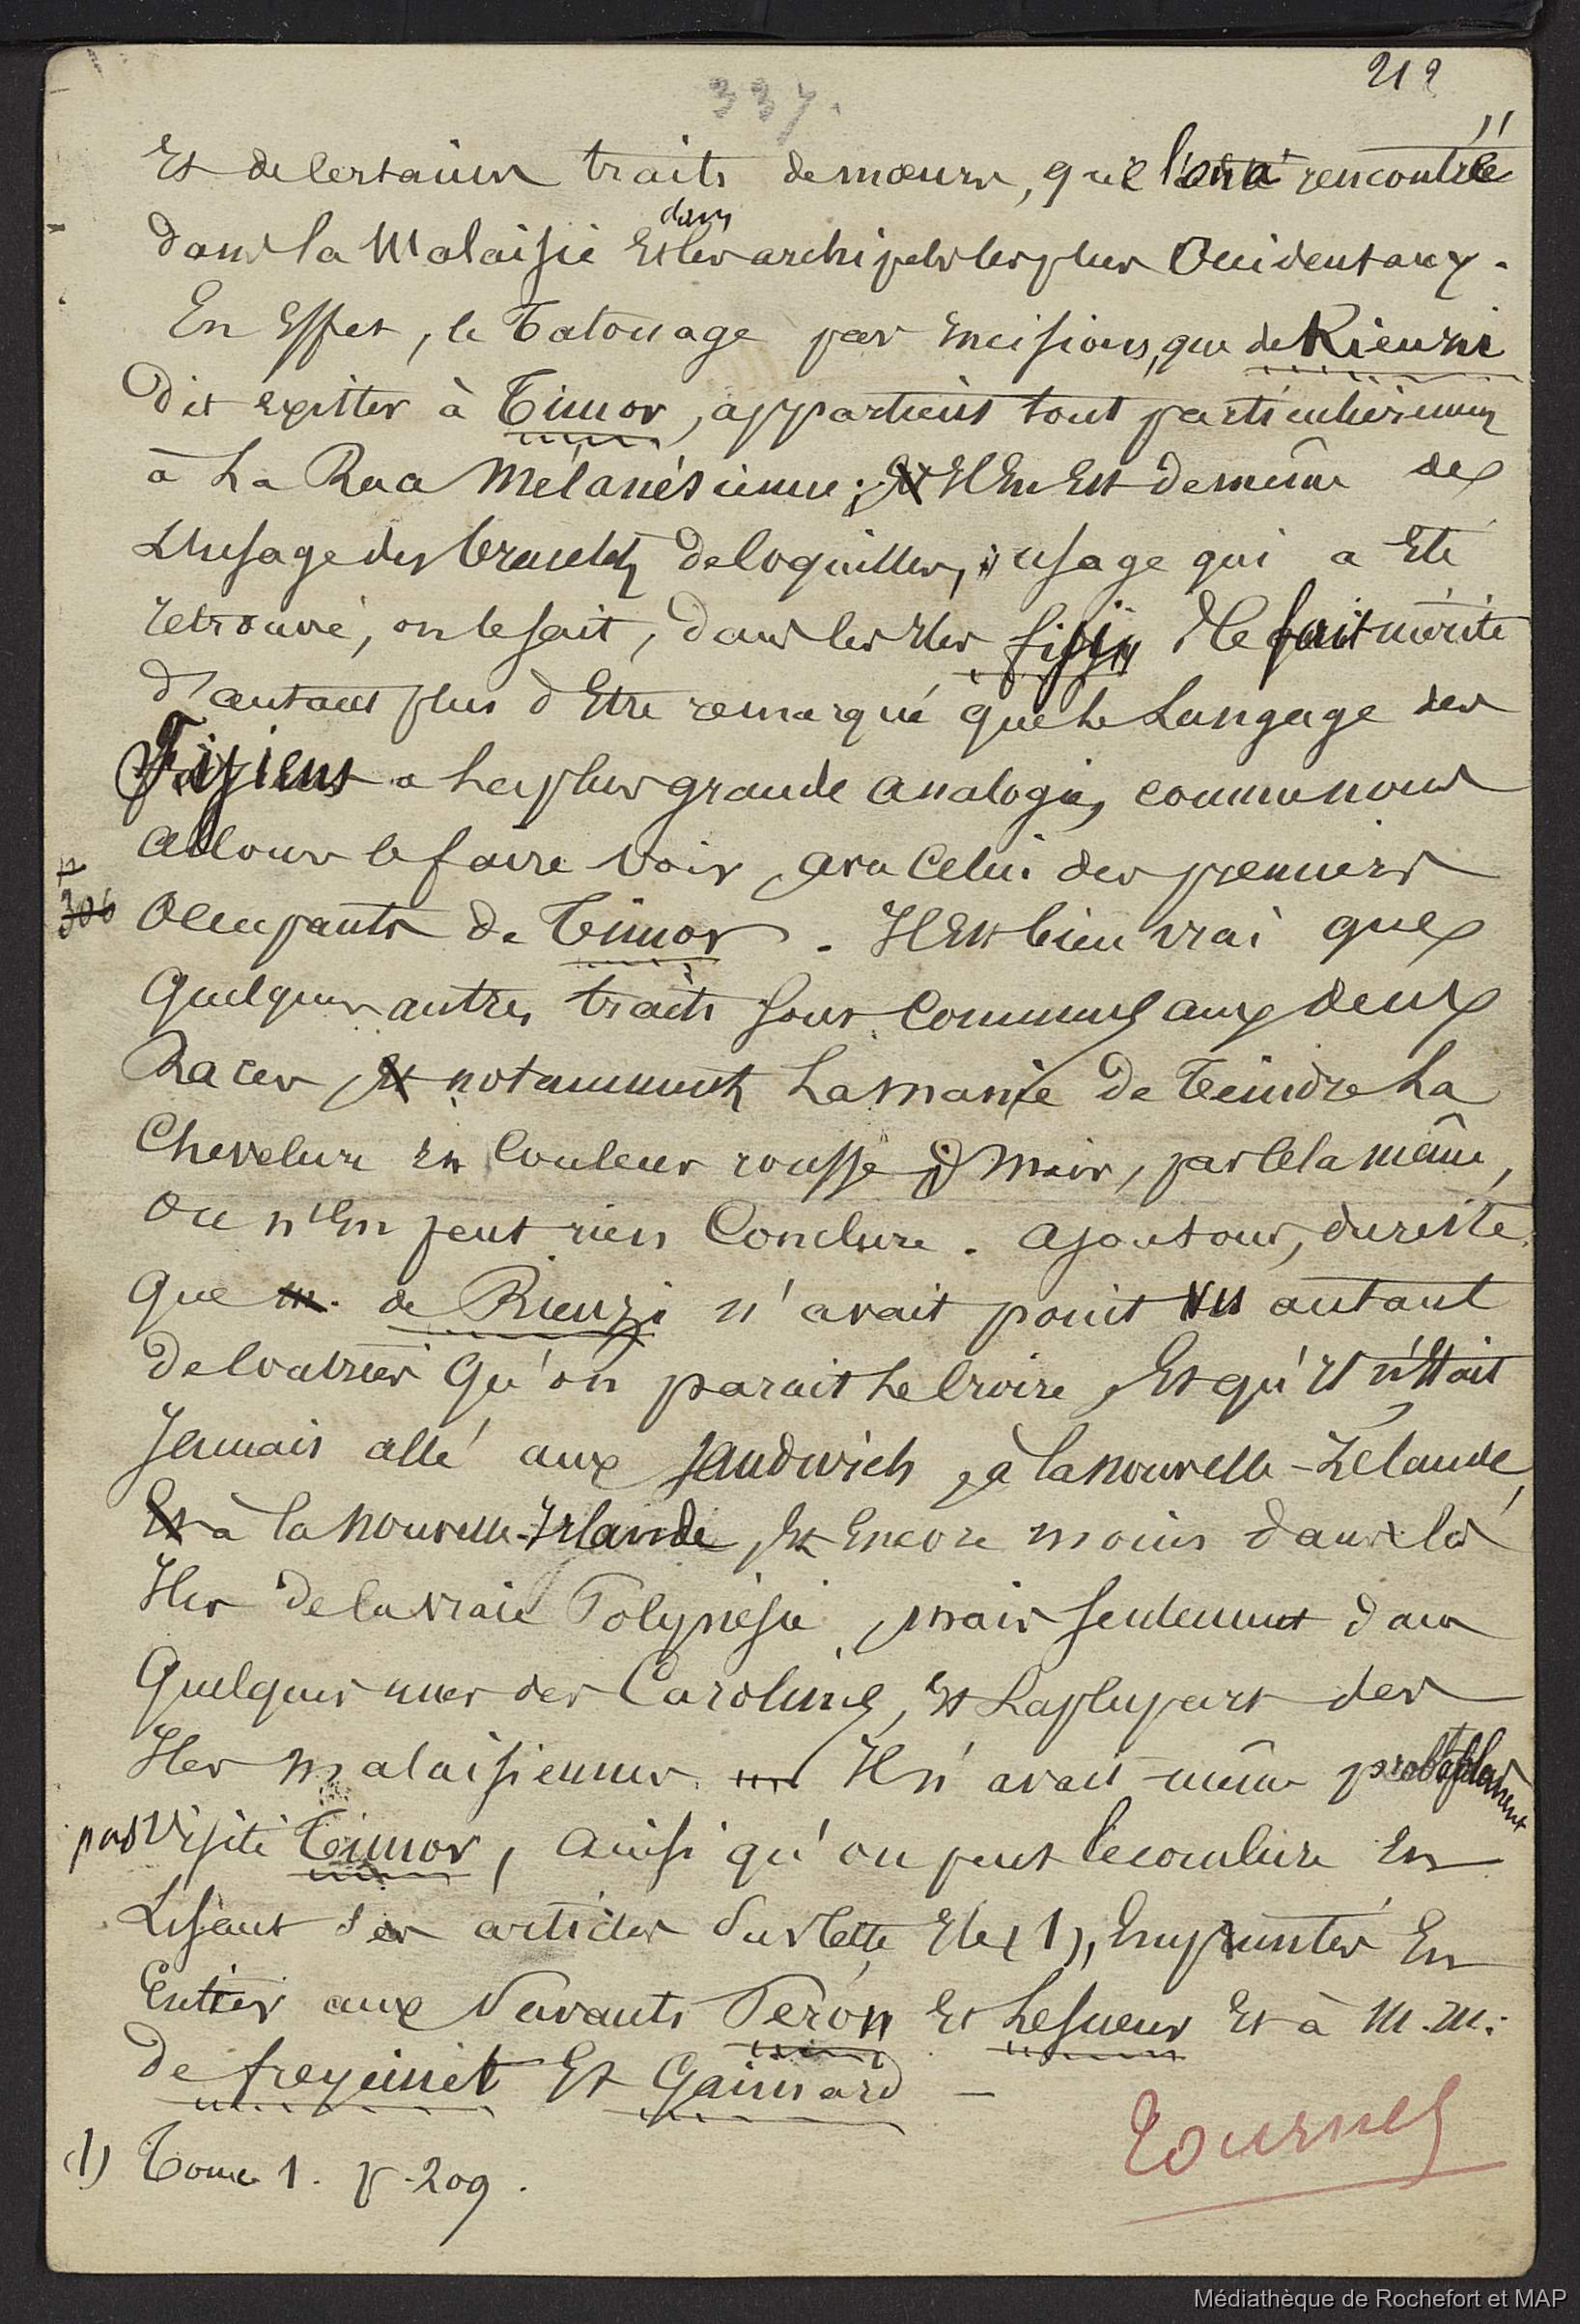 212
337.
Et de certains traits de mœurs, que l'on a rencontrés
dans la Malaisie Et dans les archipels les plus Occidentaux.
En Effet, le Tatouage par Incisions, que de Rienzi
Dit exister à Timor, appartient tout particulièrement
à La Race Mélanésienne; Il En Est de même de
L'usage des bracelets de Coquilles, usage qui a Eté
retrouvé, on le sait, Dans les Iles fiji; le fait mérite
D'autant plus d'Etre remarqué que le Langage des
Fijiens a la plus grande analogie, comme nous
allons le faire voir, avec Celui des premiers
306
Occupants de Timor. Il Est bien vrai que
Quelques autres traits sont Communs aux deux
Races, notamment La manie de Teindre La
Chevelure En Couleur rousse; Mais, par Cela même,
On n'En peut rien Conclure. Ajoutons, du reste,
Que de Rienzi n'avait point vu autant
De Contrées Qu'on parait Le Croire, Et qu'Il n'Etait
Jamais allé aux Sandwich, à la Nouvelle-Zélande,
à la Nouvelle-Irlande, Et Encore moins dans les
Iles De la vraie Polynésie, mais seulement dans
Quelques unes des Carolines, Et La plupart des
Iles malaisiennes. Il n'avait même probablement
pas visité Timor, Ainsi qu'on peut le conclure En
Lisant ses articles Sur Cette Ile (1), Empruntés En
Entier aux Savants Péron Et Lesueur Et à M.M.
De freycinet Et Gaimard —
(1) Tome 1. p. 209.
Tournez
Médiathèque de Rochefort et MAP